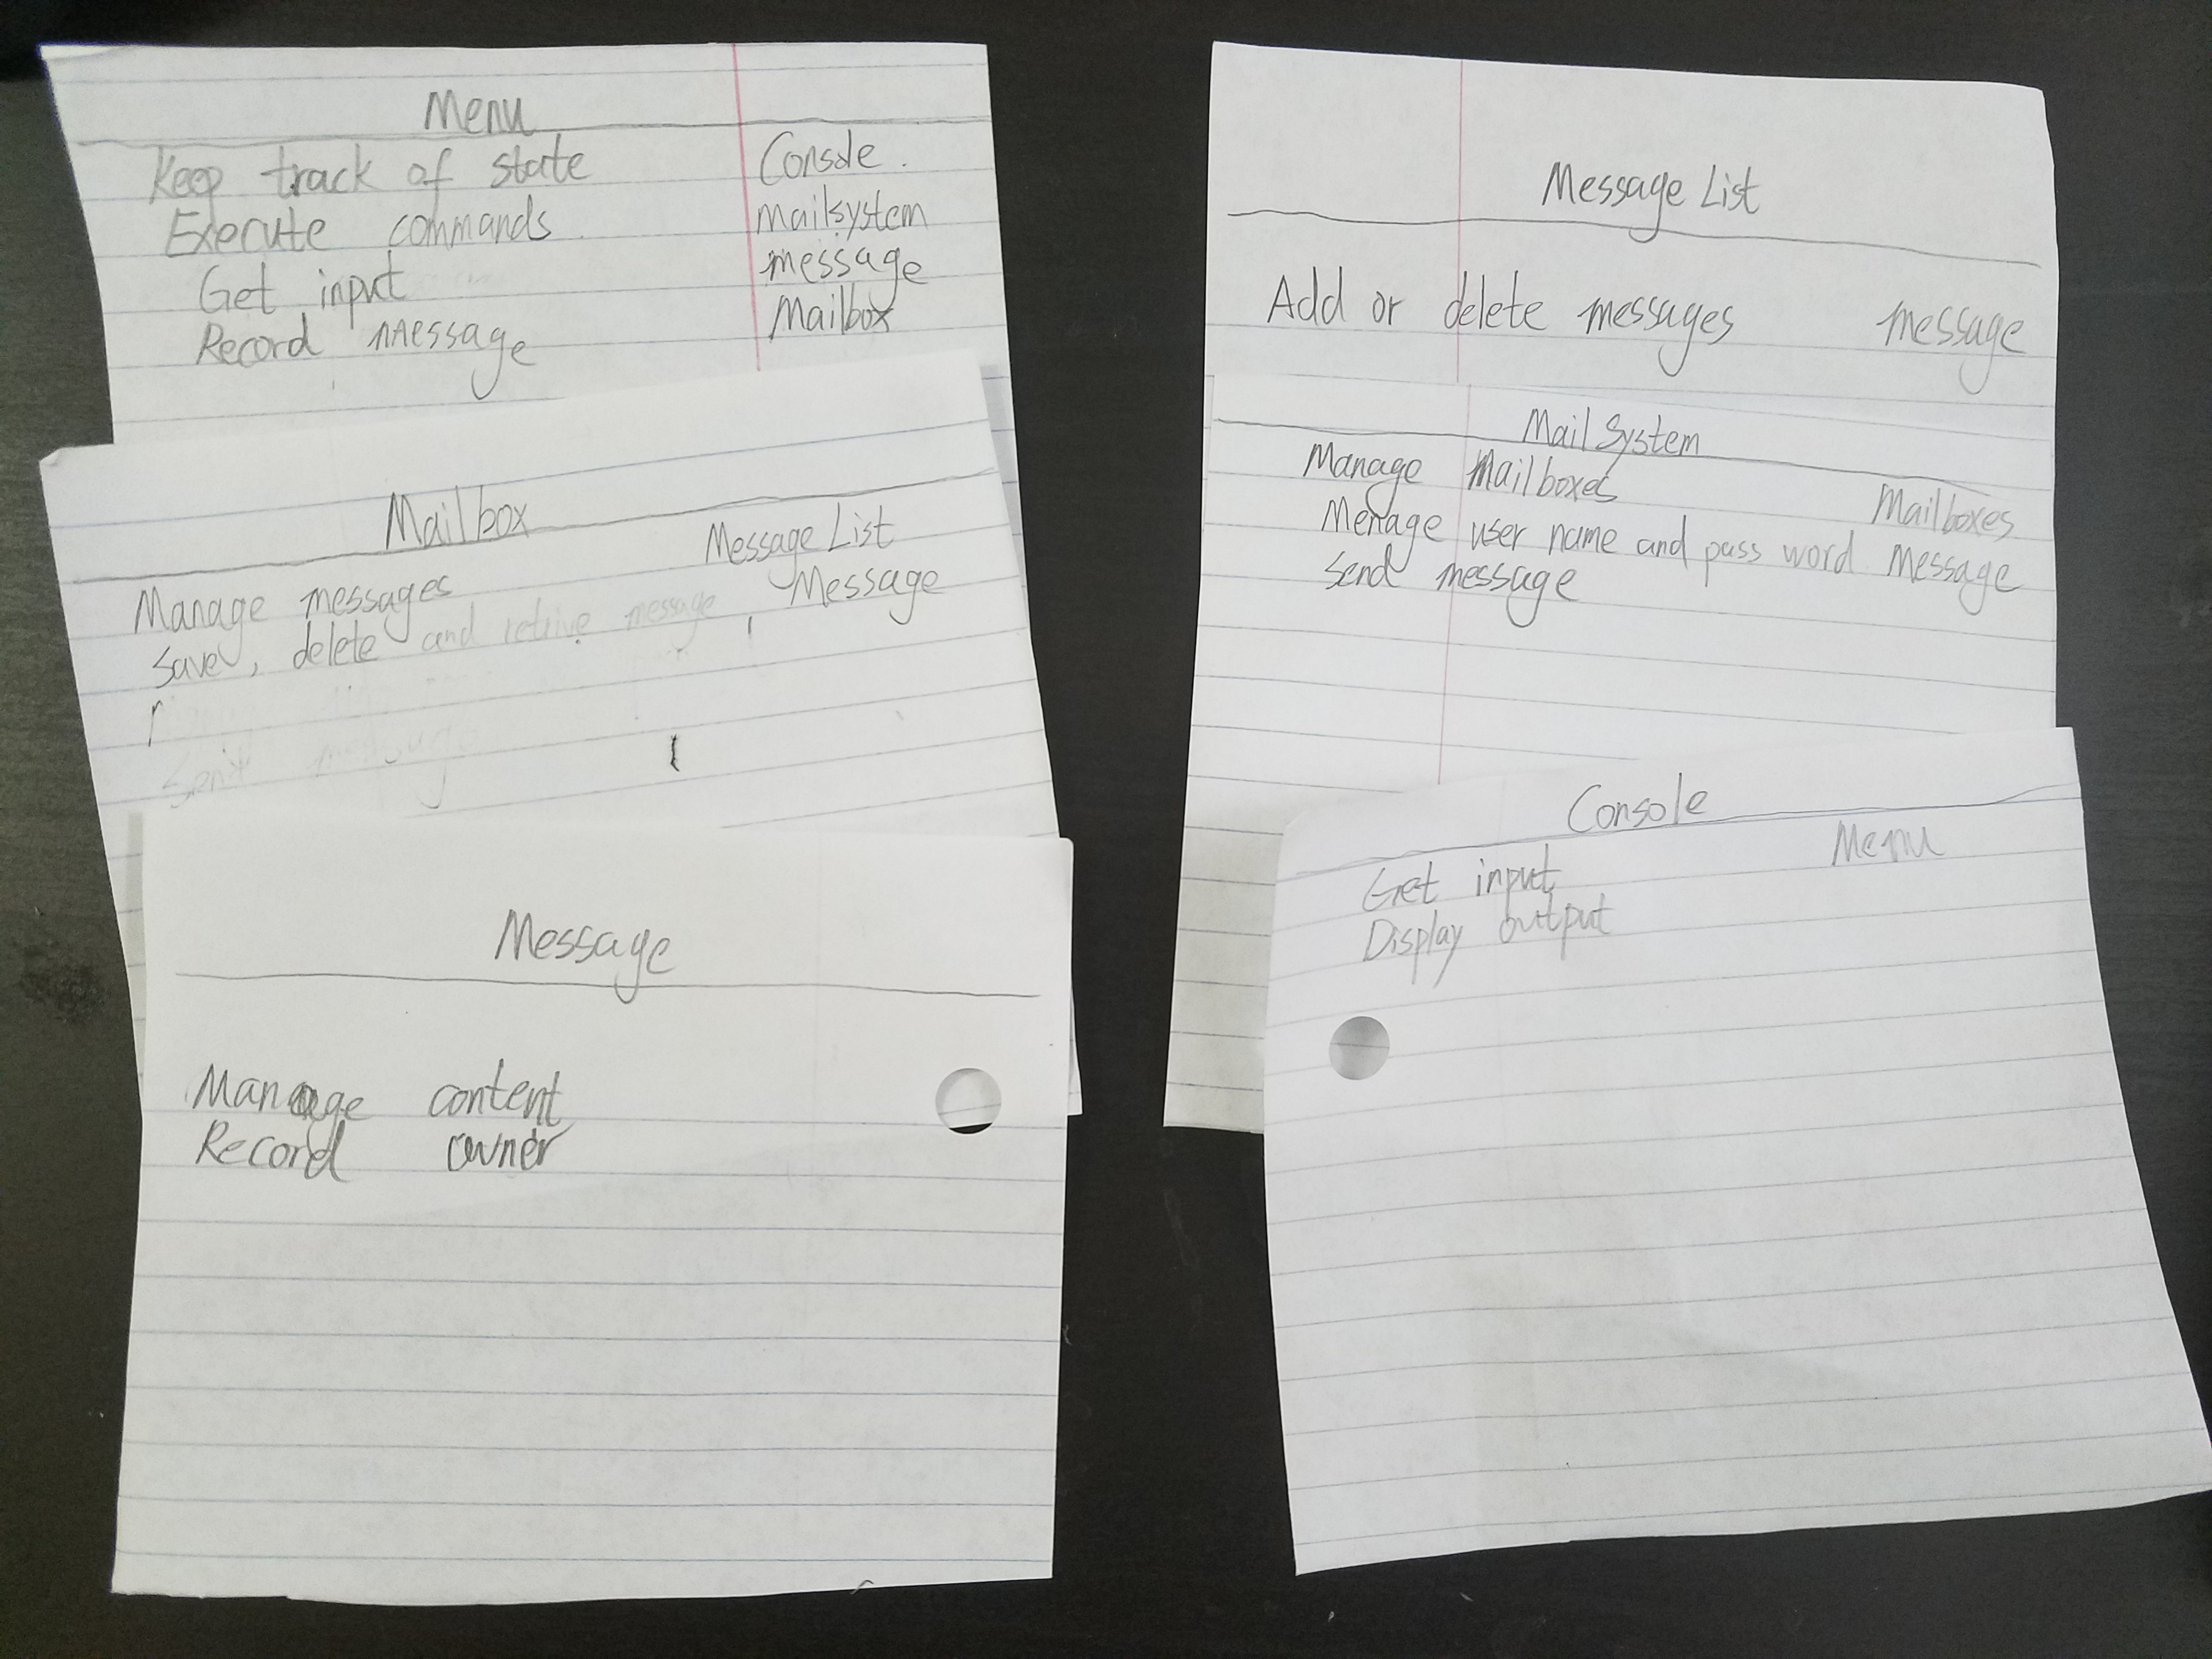 Menu
Keep track of state
Execute commands
Get input
Record message
Console.
mailsystem
message
Mailbox
Mailbox
Manage messages
save, delete and message
Message List
Message
Message
Manage content
Record owner
Message List
Add or delete messages
message
MailSystem
Manage Mailboxes
Menage user name and pass word
send message
Mailboxes
Message
Console
Get input
Display output
Menu